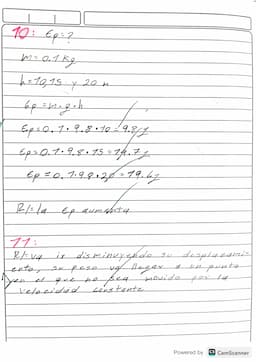 10: Ep=?
m= 0.1 kg
h=10,15 y 20 m
Ep = m·g·h
Ep= 0.1·9.8·10 = 9.8 J
Ep= 0.1·9.8·15 = 14.7 J
Ep = 0.1·9.8·20 = 19.6 J
R/: la Ep aumenta
11:
R/: va ir disminuyendo su desplazami
ento, su peso va llegar a un punto
en el que no sea movido por la
velocidad constante
Powered by CS CamScanner